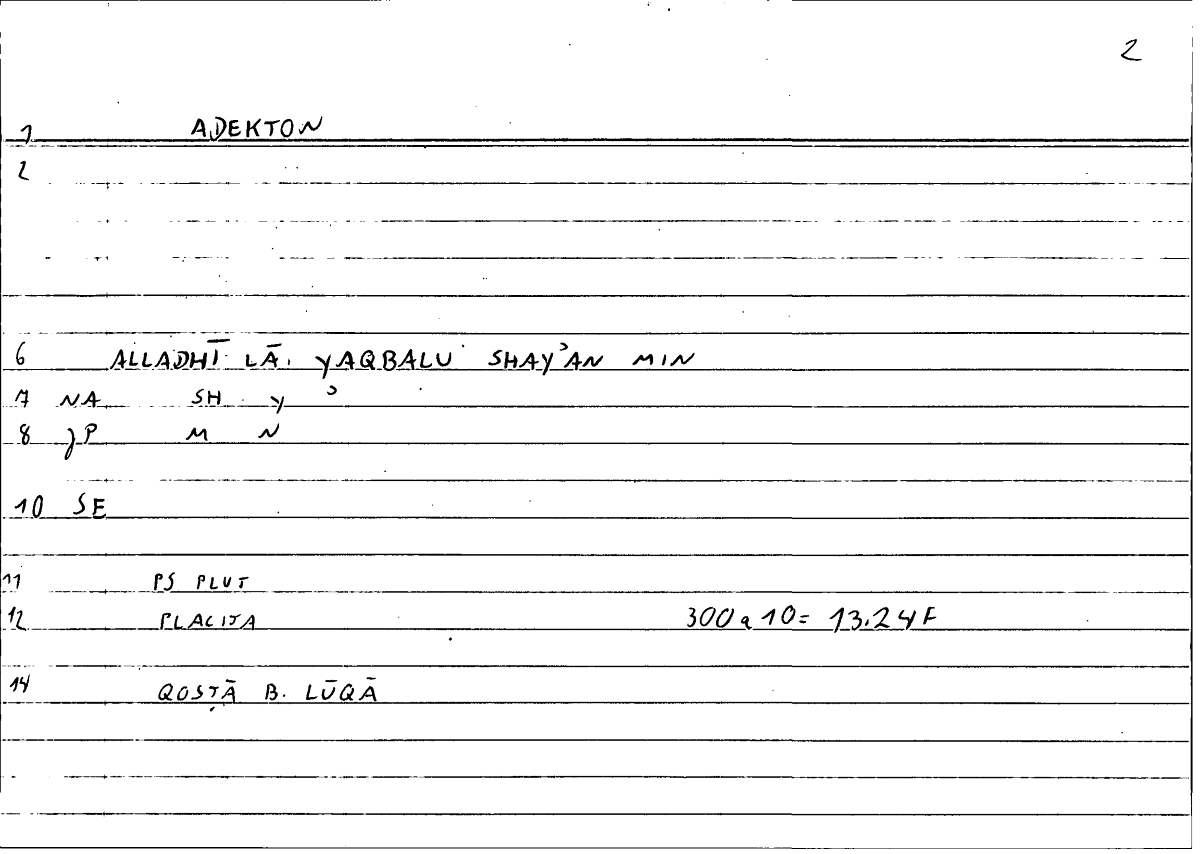 2
1 ADEKTON
2
6 ALLADHĪ LĀ YAQBALU SHAYʾAN MIN
7 NA SH Y ʾ
8 JP M N
10 SE
11 PS PLUT
12 PLACITA 300 a 10 = 13.24 F
14 QOSṬĀ B. LŪQĀ